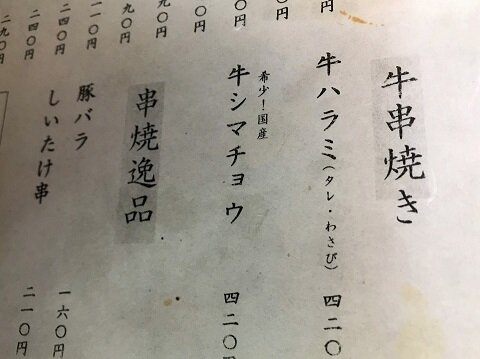 牛串焼き
牛ハラミ(タレ・わさび) 四二〇
希少!国産
牛シマチョウ 四二〇円
串焼逸品
豚バラ 一六〇円
しいたけ串 二一〇円
〇円
九〇円
九〇円
一一〇円
二四〇円
二四〇円
二九〇円